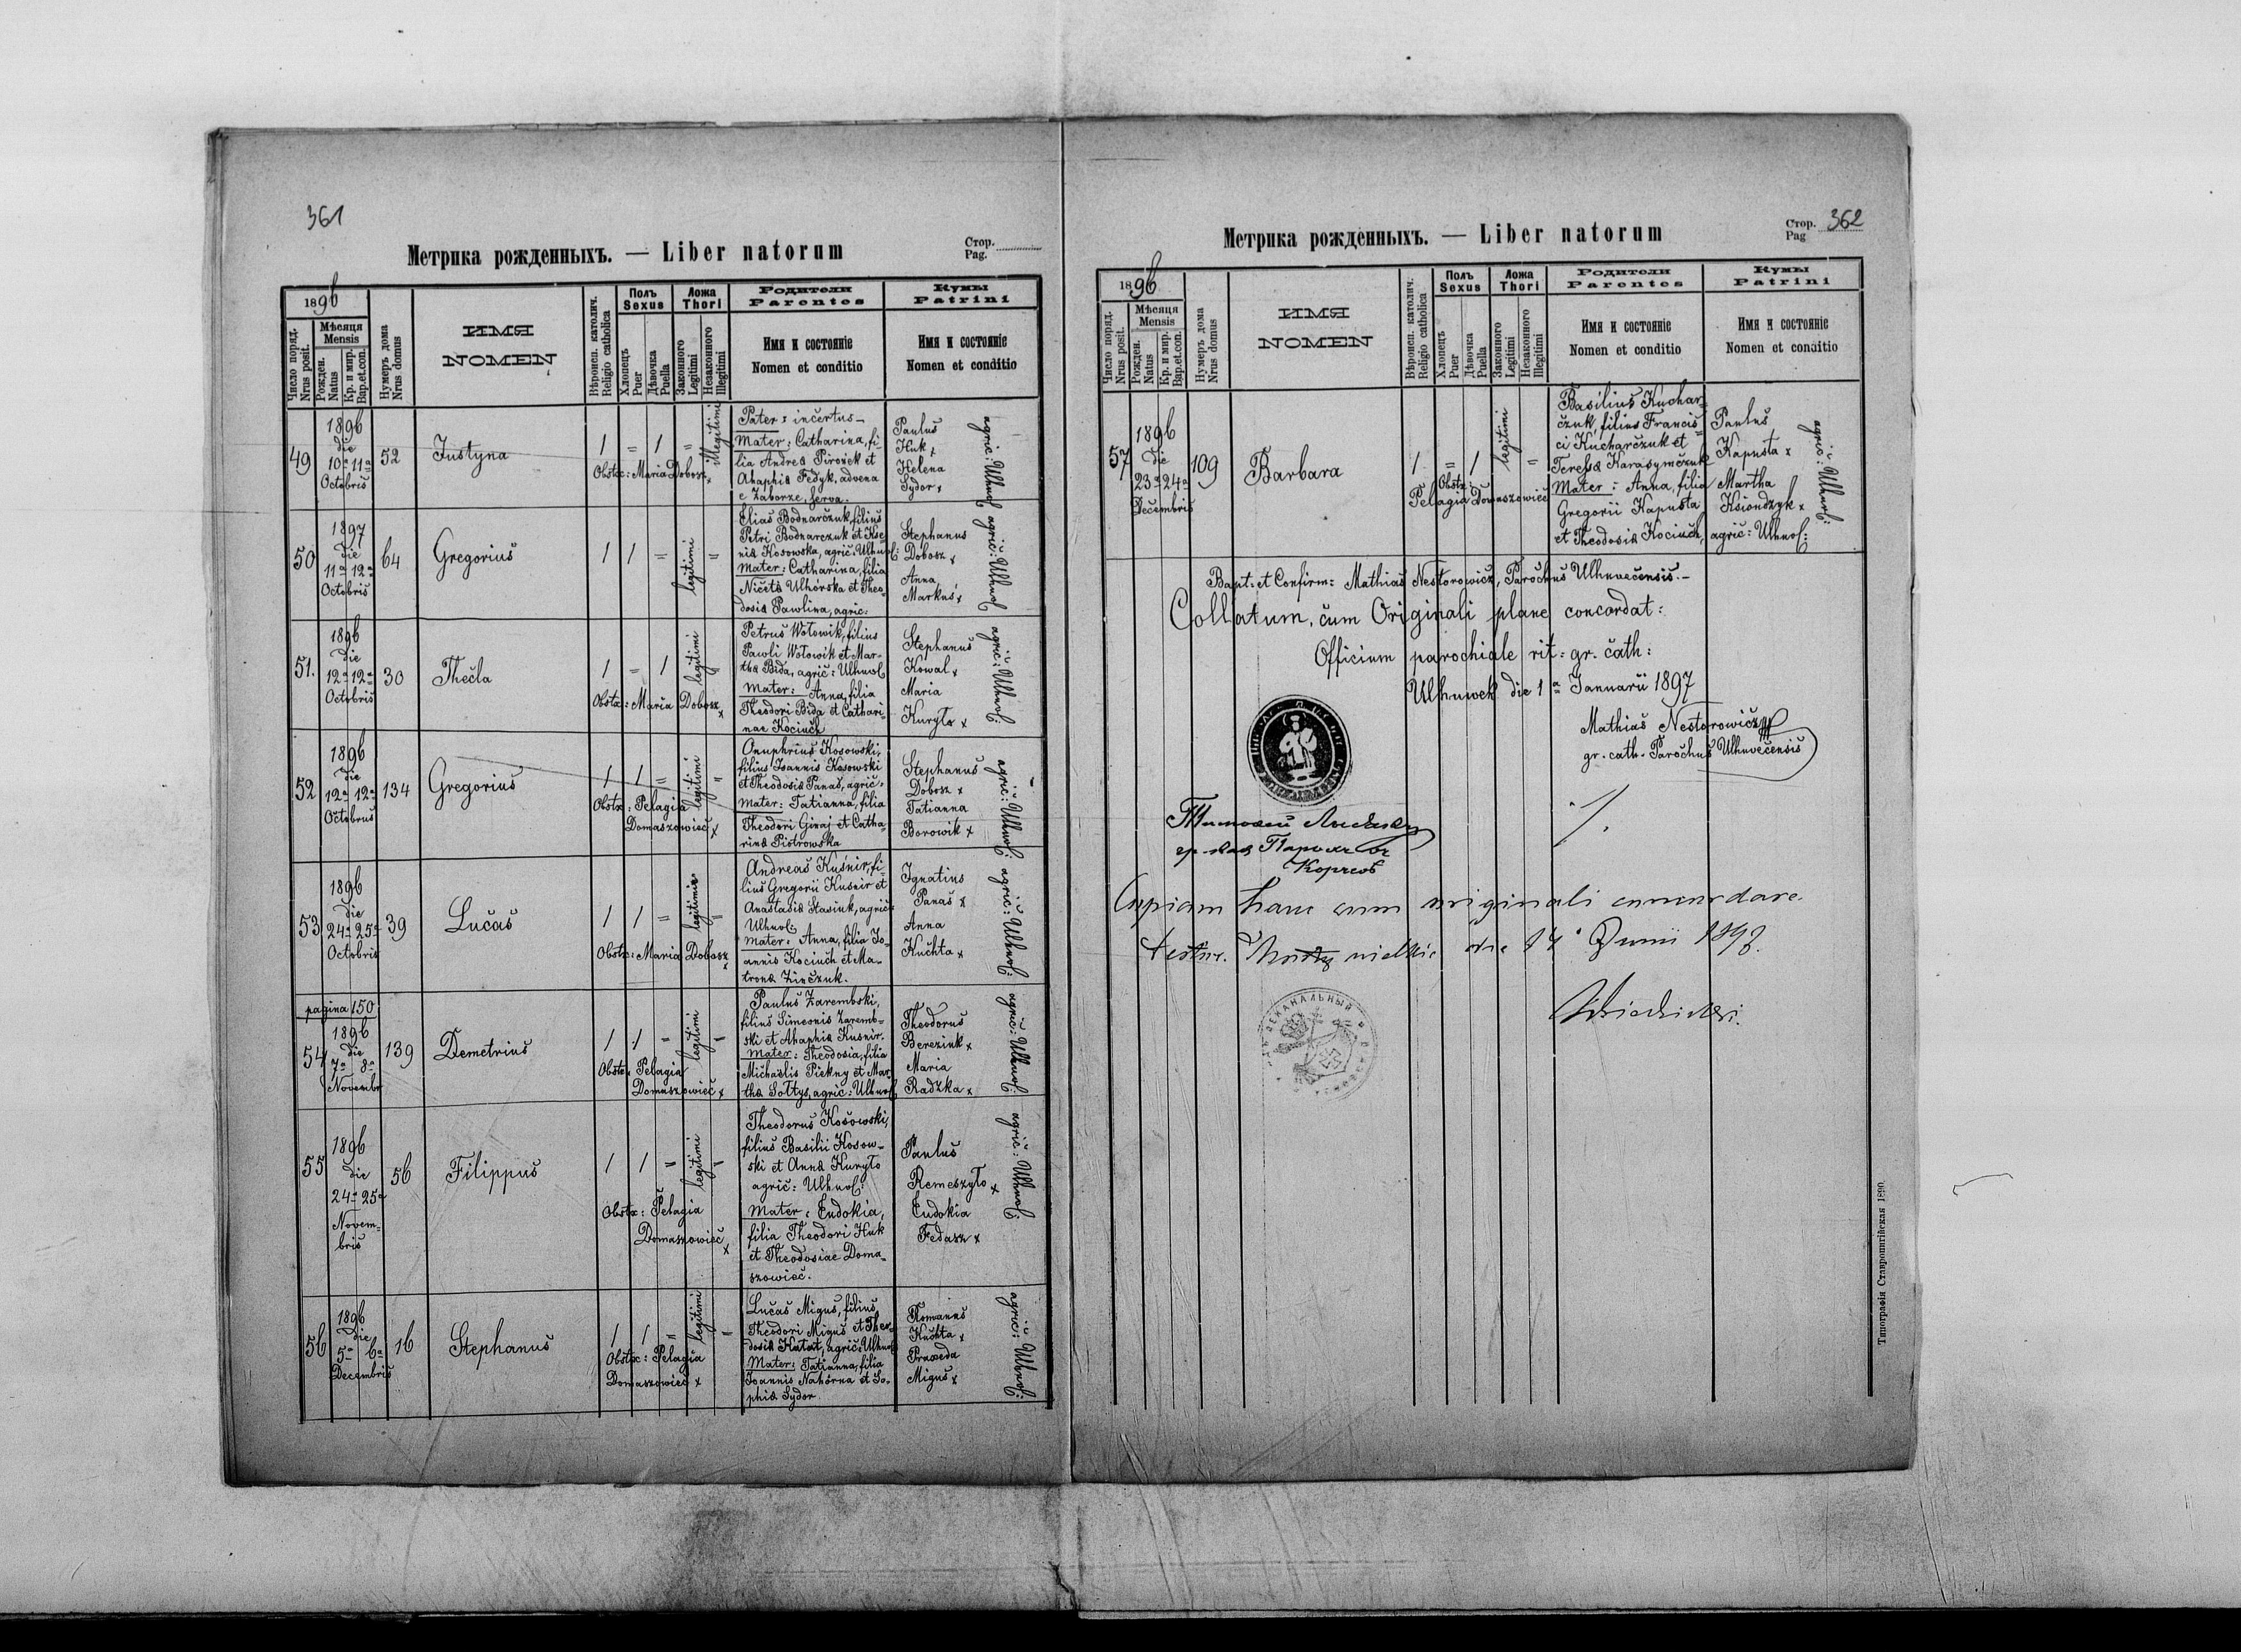 361
Метрика рожденныхъ. — Liber natorum
Стор.
Pag.
1896
Число поряд.
Nrus posit.
Мѣсяця
Mensis
Рожден.
Natus
Кр. и мир.
Bap.et.con.
Нумеръ дома
Nrus domus
ИМЯ
NOMEN
Вѣроисп. католич.
Religio catholica
Полъ
Sexus
Хлопецъ
Puer
Дѣвочка
Puella
Ложа
Thori
Законного
Legitimi
Незаконного
Illegitimi
Родители
Parentes
Имя и состояніе
Nomen et conditio
Кумы
Patrini
Имя и состояніе
Nomen et conditio
49
1896
die
10a 11a
Octobris
52
Justyna
1 = 1 = illegitimi
Obstx: Maria Dobosz x
Pater: incertus —
Mater: Catharina, fi-
lia Andrea Pirożek et
Ahaphia Fedyk, advena
e Zaborze, serva.
Paulus
Huk x
Helena
Sydor x
agric: Ulhnof
50
1897
die
11a 12a
Octobris
64
Gregorius
1 1 = legitimi =
Elias Bodnarčzuk, filius
Petri Bodnarczuk et Kse-
nia Kosowska, agric: Ulhnof:
Mater: Catharina, filia
Niceta Ulhórska et Theo-
dosia Pawlina, agric:
Stephanus
Dobosz x
Anna
Markus x
agric: Ulhnof
51.
1896
die
12a 12a
Octobris
30
Thecla
1 = 1 legitimi =
Obstx: Maria Dobosz x
Petrus Wołowik, filius
Pawli Wołowik et Mar-
tha Bida, agric: Ulhnof
Mater: Anna, filia
Theodori Bida et Cathari-
nae Kociuch
Stephanus
Kowal x
Maria
Kuryło x
agric: Ulhnof:
52
1896
die
12a 12a
Octobris
134
Gregorius
1 1 = legitimi =
Obstx: Pelagia
Domaszowieč x
Onuphrius Kosowski,
filius Joannis Kosowski
et Theodosia Panas, agric:
Mater: Tatianna, filia
Theodori Giraj et Catha-
rina Piotrowska
Stephanus
Dobosz x
Tatianna
Borowik x
agric: Ulhnof:
53
1896
die
24a 25a
Octobris
39
Lucas
1 1 = legitimi =
Obstx: Maria Dobosz x
Andreas Kuśnir, fi-
lius Gregorii Kusnir et
Anastasia Stasiuk, agric:
Ulhnof:
Mater: Anna, filia Jo-
annis Kociuch et Ma-
trona Zinczuk.
Ignatius
Panas x
Anna
Kuchta x
agric: Ulhnof:
pagina 150
54
1896
die
7a 8a
Novembr
139
Demetrius
1 1 = legitimi =
Obstx: Pelagia
Domaszowieč x
Paulus Zarembski,
filius Simeonis Zaremb-
ski et Ahaphia Kusnir.
Mater: Theodosia, filia
Michaelis Piekny et Mar-
tha Sołtys, agric: Ulhnof
Theodorus
Bereziuk x
Maria
Radzka x
agric: Ulhnof:
55
1896
die
24a 25a
Novem-
bris
56
Filippus
1 1 = legitimi =
Obstx: Pelagia
Domaszowieč x
Theodorus Kosowski,
filius Basilii Kosow-
ski et Anna Kuryło
agric: Ulhnof:
Mater: Eudokia,
filia Theodori Huk
et Theodosiae Doma-
szowieč.
Paulus
Remeszyło x
Eudokia
Fedasz x
agric: Ulhnof:
56
1896
die
5a 6a
Decembris
16
Stephanus
1 1 = legitimi =
Obstx: Pelagia
Domaszowieč x
Lucas Migus, filius
Theodori Migus et Theo-
dosia Katat, agric: Ulhnof
Mater: Tatianna, filia
Joannis Nahórna et So-
phia Sydor.
Romanus
Kuchta x
Praxeda
Migus x
agric: Ulhnof:
Метрика рожденныхъ. — Liber natorum
Стор. 362
Pag
1896
Число поряд.
Nrus posit.
Мѣсяця
Mensis
Рожден.
Natus
Кр. и мир.
Bap.et.con.
Нумеръ дома
Nrus domus
ИМЯ
NOMEN
Вѣроисп. католич.
Religio catholica
Полъ
Sexus
Хлопецъ
Puer
Дѣвочка
Puella
Ложа
Thori
Законного
Legitimi
Незаконного
Illegitimi
Родители
Parentes
Имя и состояніе
Nomen et conditio
Кумы
Patrini
Имя и состояніе
Nomen et conditio
57
1896
die
23a 24a
Decembris
109
Barbara
1 = 1 legitimi =
Obstx:
Pelagia Domaszowieč
Basilius Kuchar-
czuk, filius Francis-
ci Kucharczuk et
Teressa Karasymczuk
Mater: Anna, filia
Gregorii Kapusta
et Theodosia Kociuch,
Paulus
Kapusta x
Martha
Ksiondzyk x
agric: Ulhnof:
agric: Ulhnof:
Bapt: et Confirm: Mathias Nestorowicz, Parochus Ulhnvecensis. —
Collatum, cum Originali plane concordat:
Officium parochiale rit: gr. cath:
Ulhnwek die 1a Januarii 1897
Mathias Nestorowicz
gr. cath. Parochus Ulhnvecensis
Copiam hanc cum originali concordare
testor. die 14 Junii 1897.
Типографія Ставропигійская 1890.